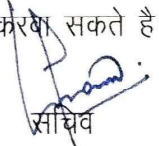 करवा सकते है
सचिव